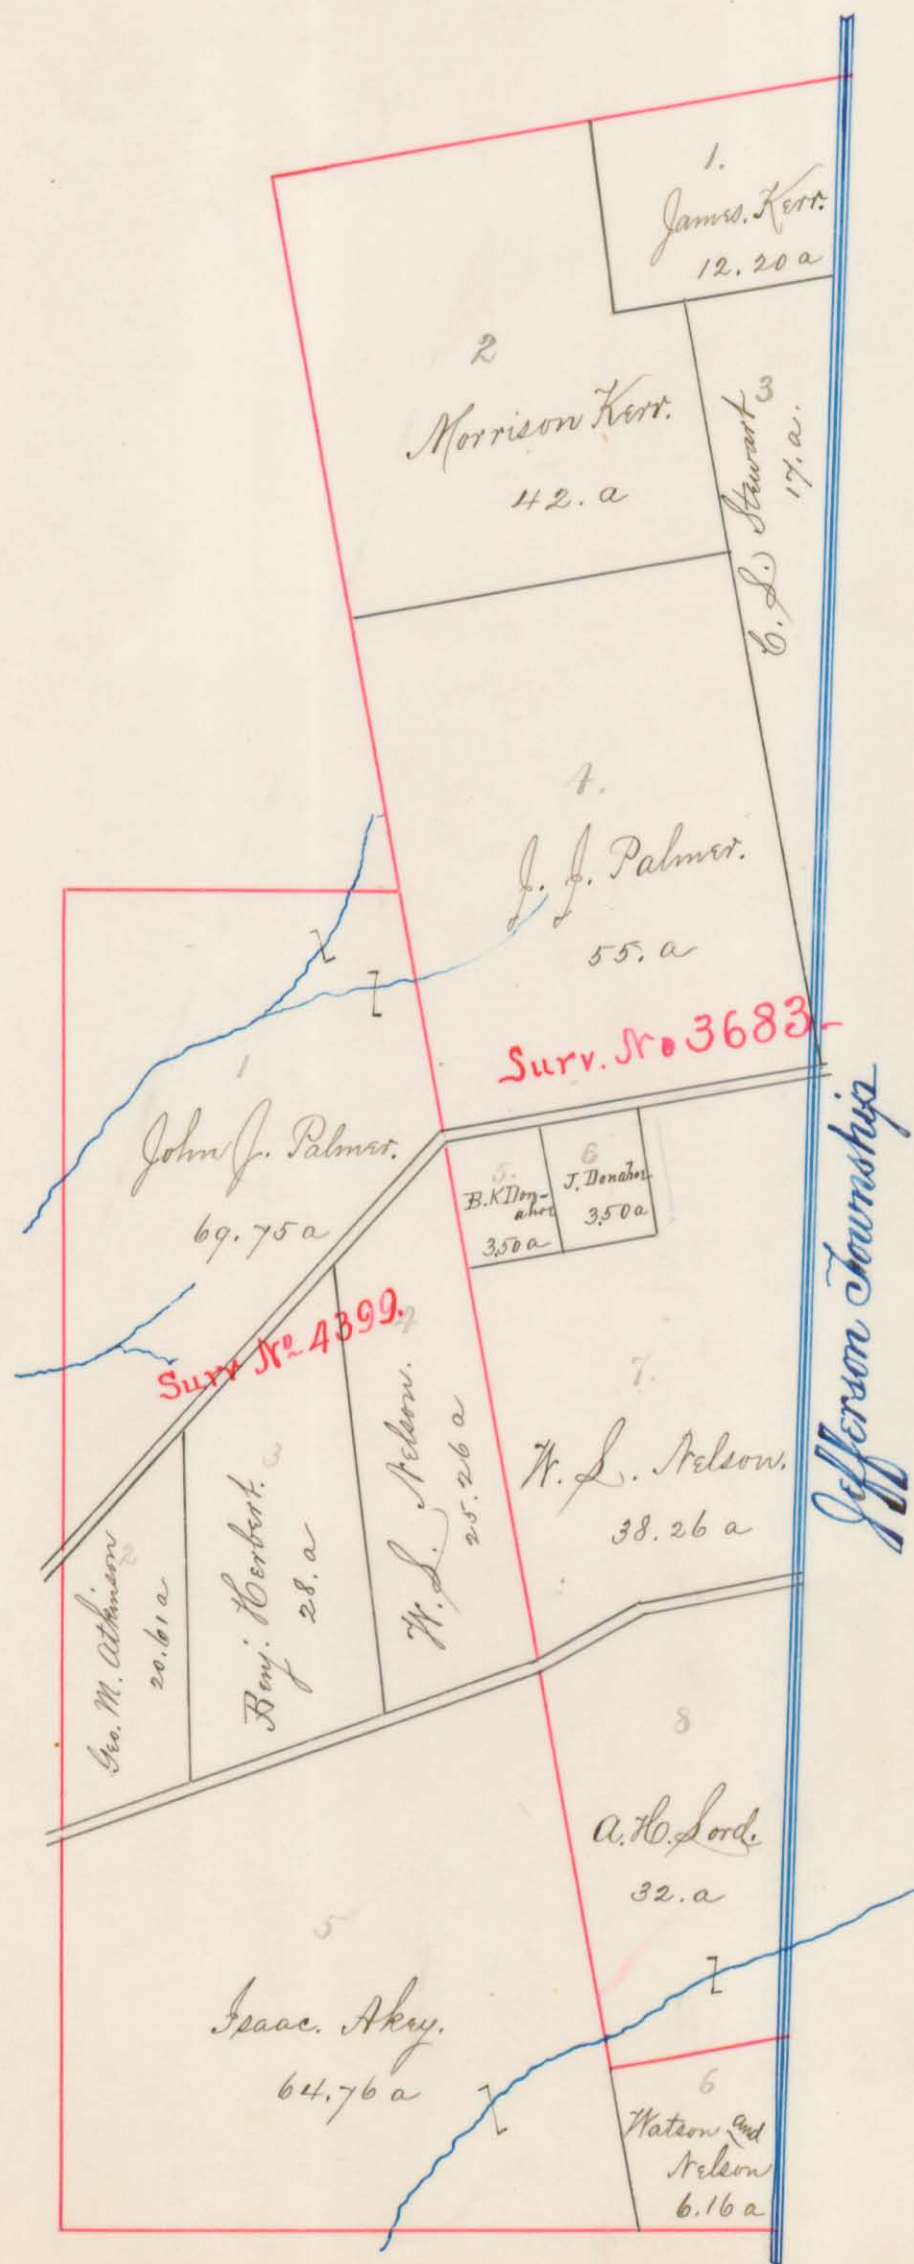 1.
James. Kerr.
12.20 a
2
Morrison Kerr.
42. a
3
C. S. Stewart
17. a.
4.
J. J. Palmer.
55. a
Surv. No 3683-
Jefferson Township
1
John J. Palmer.
69.75 a
5.
B. K Don-
ahoe
3.50 a
6
J. Donahoe
3.50 a
Surv No 4399.
4
W. S. Nelson.
25.26 a
7.
W. S. Nelson.
38.26 a
3
Benj. Herbert.
28. a
2
Geo. M. Atkinson
20.61 a
8
A. H. Lord.
32. a
5
Isaac. Akey.
64.76 a
6
Watson and
Nelson
6.16 a